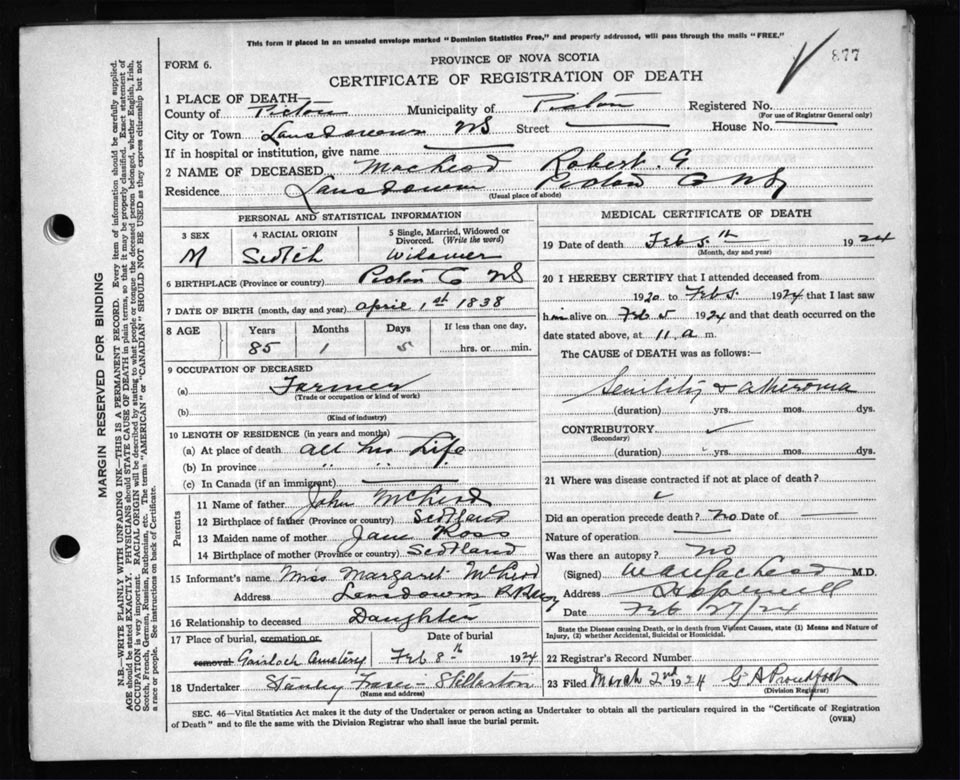 This form if placed in an unsealed envelope marked "Dominion Statistics Free," and properly addressed, will pass through the mails "FREE."
877
FORM 6.
PROVINCE OF NOVA SCOTIA
CERTIFICATE OF REGISTRATION OF DEATH
1 PLACE OF DEATH—
County of Pictou Municipality of Pictou Registered No.
(For use of Registrar General only)
City or Town Lansdowne NS Street House No.
If in hospital or institution, give name
2 NAME OF DECEASED MacLeod Robert. G
Residence Lansdowne Pictou Co NS
(Usual place of abode)
PERSONAL AND STATISTICAL INFORMATION
3 SEX 4 RACIAL ORIGIN 5 Single, Married, Widowed or Divorced. (Write the word)
M Scotch Widower
6 BIRTHPLACE (Province or country) Pictou Co NS
7 DATE OF BIRTH (month, day and year) April 1st 1838
8 AGE Years Months Days If less than one day,
85 1 5 hrs. or min.
9 OCCUPATION OF DECEASED
(a) Farmer
(Trade or occupation or kind of work)
(b)
(Kind of industry)
10 LENGTH OF RESIDENCE (in years and months)
(a) At place of death all his Life
(b) In province " " "
(c) In Canada (if an immigrant)
Parents
11 Name of father John McLeod
12 Birthplace of father (Province or country) Scotland
13 Maiden name of mother Jane Ross
14 Birthplace of mother (Province or country) Scotland
15 Informant's name Miss Margaret McLeod
Address Lansdowne
16 Relationship to deceased Daughter
17 Place of burial, cremation or removal Date of burial
Gairloch Cemetery Feb 8th 1924
18 Undertaker Stanley Fraser - Stellarton
(Name and address)
MEDICAL CERTIFICATE OF DEATH
19 Date of death Feb 5th 1924
(Month, day and year)
20 I HEREBY CERTIFY that I attended deceased from
1920 to Feb 5. 1924 that I last saw
him alive on Feb 5 1924 and that death occurred on the
date stated above, at 11 a m.
The CAUSE of DEATH was as follows:—
Senility & atheroma
(duration) yrs. mos. dys.
CONTRIBUTORY
(Secondary)
(duration) yrs. mos. dys.
21 Where was disease contracted if not at place of death?
Did an operation precede death? no Date of
Nature of operation
Was there an autopsy? no
(Signed) M.D.
Address Hopewell
Date Feb 27/24
State the Disease causing Death, or in death from Violent Causes, state (1) Means and Nature of Injury, (2) whether Accidental, Suicidal or Homicidal.
22 Registrar's Record Number
23 Filed March 2nd 1924 G A Proudfoot
(Division Registrar)
SEC. 46—Vital Statistics Act makes it the duty of the Undertaker or person acting as Undertaker to obtain all the particulars required in the "Certificate of Registration
of Death" and to file the same with the Division Registrar who shall issue the burial permit.
(OVER)
MARGIN RESERVED FOR BINDING
N.B.—WRITE PLAINLY WITH UNFADING INK—THIS IS A PERMANENT RECORD. Every item of information should be carefully supplied.
AGE should be stated EXACTLY. PHYSICIANS should STATE CAUSE OF DEATH in plain terms, so that it may be properly classified. Exact statement of
OCCUPATION is very important. RACIAL ORIGIN will be described by stating to what people or tongue the deceased person belonged, whether English, Irish,
Scotch, French, German, Russian, Ruthenian, etc. The terms "AMERICAN" or "CANADIAN" SHOULD NOT BE USED as they express citizenship but not
a race or people. See instructions on back of Certificate.